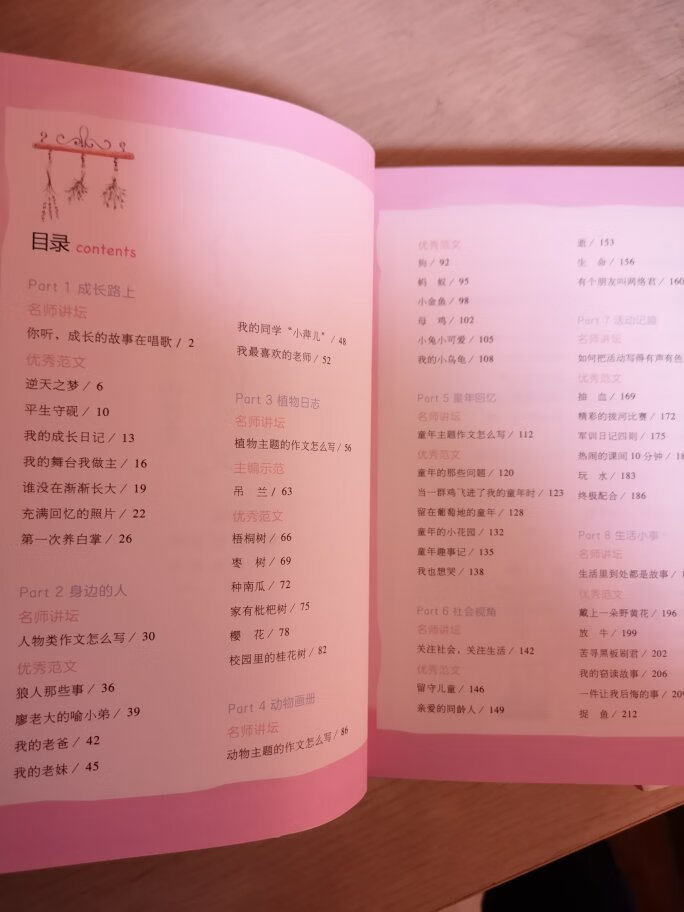 目录 contents
Part 1 成长路上
名师讲坛
你听，成长的故事在唱歌 / 2
优秀范文
逆天之梦 / 6
平生守砚 / 10
我的成长日记 / 13
我的舞台我做主 / 16
谁没在渐渐长大 / 19
充满回忆的照片 / 22
第一次养白掌 / 26
Part 2 身边的人
名师讲坛
人物类作文怎么写 / 30
优秀范文
狼人那些事 / 36
廖老大的喻小弟 / 39
我的老爸 / 42
我的老妹 / 45
我的同学“小萍儿” / 48
我最喜欢的老师 / 52
Part 3 植物日志
名师讲坛
植物主题的作文怎么写 / 56
主编示范
吊 兰 / 63
优秀范文
梧桐树 / 66
枣 树 / 69
种南瓜 / 72
家有枇杷树 / 75
樱 花 / 78
校园里的桂花树 / 82
Part 4 动物画册
名师讲坛
动物主题的作文怎么写 / 86
优秀范文
狗 / 92
蚂 蚁 / 95
小金鱼 / 98
母 鸡 / 102
小兔小可爱 / 105
我的小乌龟 / 108
Part 5 童年回忆
名师讲坛
童年主题作文怎么写 / 112
优秀范文
童年的那些问题 / 120
当一群鸡飞进了我的童年时 / 123
留在葡萄地的童年 / 128
童年的小花园 / 132
童年趣事记 / 135
我也想哭 / 138
Part 6 社会视角
名师讲坛
关注社会，关注生活 / 142
优秀范文
留守儿童 / 146
亲爱的同龄人 / 149
逝 / 153
生 命 / 156
有个朋友叫网络君 / 160
Part 7 活动记趣
名师讲坛
如何把活动写得有声有色
优秀范文
抽 血 / 169
精彩的拔河比赛 / 172
军训日记四则 / 175
热闹的课间 10 分钟 /
玩 水 / 183
终极配合 / 186
Part 8 生活小事
名师讲坛
生活里到处都是故事 /
优秀范文
戴上一朵野黄花 / 196
放 牛 / 199
苦寻黑板刷君 / 202
我的窃读故事 / 206
一件让我后悔的事 / 209
捉 鱼 / 212